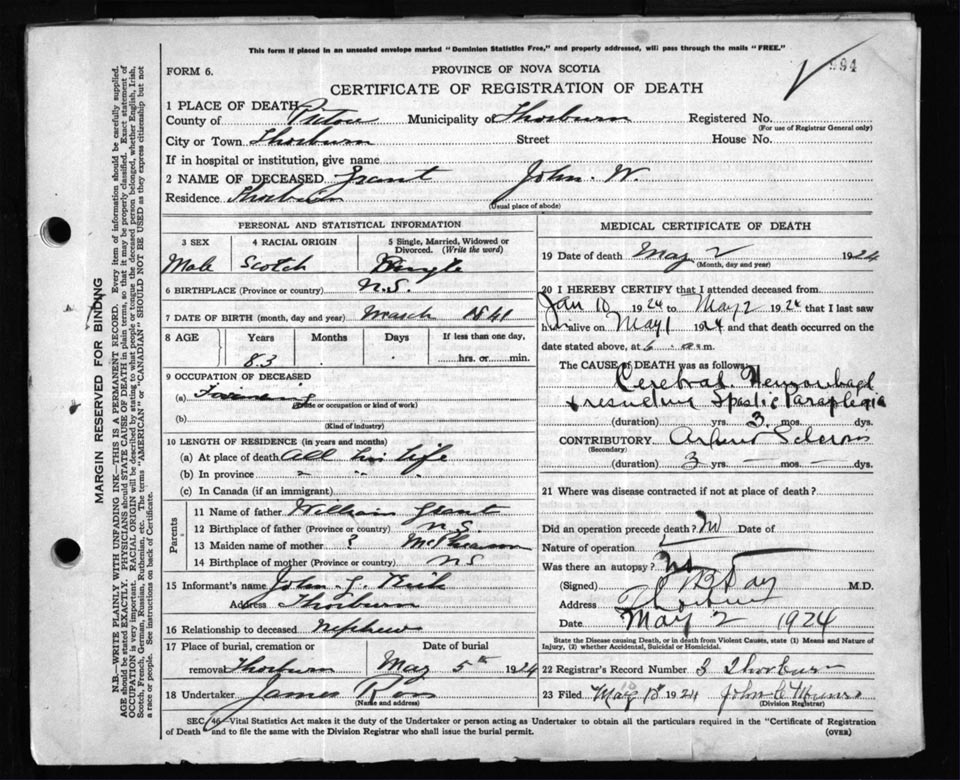 This form if placed in an unsealed envelope marked "Dominion Statistics Free," and properly addressed, will pass through the mails "FREE."
FORM 6.
PROVINCE OF NOVA SCOTIA
994
CERTIFICATE OF REGISTRATION OF DEATH
1 PLACE OF DEATH
County of Pictou Municipality of Thorburn Registered No.
(For use of Registrar General only)
City or Town Thorburn Street House No.
If in hospital or institution, give name
2 NAME OF DECEASED Grant John. W.
Residence Thorburn
(Usual place of abode)
PERSONAL AND STATISTICAL INFORMATION
3 SEX 4 RACIAL ORIGIN 5 Single, Married, Widowed or Divorced. (Write the word)
Male Scotch Single
6 BIRTHPLACE (Province or country) N.S.
7 DATE OF BIRTH (month, day and year) March 1841
8 AGE Years Months Days If less than one day,
83 hrs. or min.
9 OCCUPATION OF DECEASED
(a) Farming
(Trade or occupation or kind of work)
(b)
(Kind of industry)
10 LENGTH OF RESIDENCE (in years and months)
(a) At place of death All his life
(b) In province " "
(c) In Canada (if an immigrant)
Parents
11 Name of father William Grant
12 Birthplace of father (Province or country) N.S.
13 Maiden name of mother ? McPherson
14 Birthplace of mother (Province or country) N.S.
15 Informant's name John G.
Address Thorburn
16 Relationship to deceased Nephew
17 Place of burial, cremation or
removal Thorburn May 5th 1924
18 Undertaker James Ross
(Name and address)
MEDICAL CERTIFICATE OF DEATH
19 Date of death May 2 1924
(Month, day and year)
20 I HEREBY CERTIFY that I attended deceased from
Jan 10 1924 to May 2 1924 that I last saw
h alive on May 1 1924 and that death occurred on the
date stated above, at 6 a.m.
The CAUSE of DEATH was as follows:
Cerebral Hemorrhage
& resulting Spastic Paraplegia
(duration) yrs. 3 mos. dys.
CONTRIBUTORY Arterio Sclerosis
(Secondary)
(duration) 3 yrs. mos. dys.
21 Where was disease contracted if not at place of death?
Did an operation precede death? No Date of
Nature of operation
Was there an autopsy? No
(Signed) Day M.D.
Address Thorburn
Date May 2 1924
State the Disease causing Death, or in death from Violent Causes, state (1) Means and Nature of
Injury, (2) whether Accidental, Suicidal or Homicidal.
22 Registrar's Record Number 3 Thorburn
23 Filed May 10 1924 John C Munro
(Division Registrar)
SEC. 46—Vital Statistics Act makes it the duty of the Undertaker or person acting as Undertaker to obtain all the particulars required in the "Certificate of Registration
of Death" and to file the same with the Division Registrar who shall issue the burial permit.
(OVER)
MARGIN RESERVED FOR BINDING
N.B.—WRITE PLAINLY WITH UNFADING INK—THIS IS A PERMANENT RECORD. Every item of information should be carefully supplied.
AGE should be stated EXACTLY. PHYSICIANS should STATE CAUSE OF DEATH in plain terms, so that it may be properly classified. Exact statement of
OCCUPATION is very important. RACIAL ORIGIN will be described by stating to what people or tongue the deceased person belonged, whether English, Irish,
Scotch, French, German, Russian, Ruthenian, etc. The terms "AMERICAN" or "CANADIAN" SHOULD NOT BE USED as they express citizenship but not
a race or people. See instructions on back of Certificate.